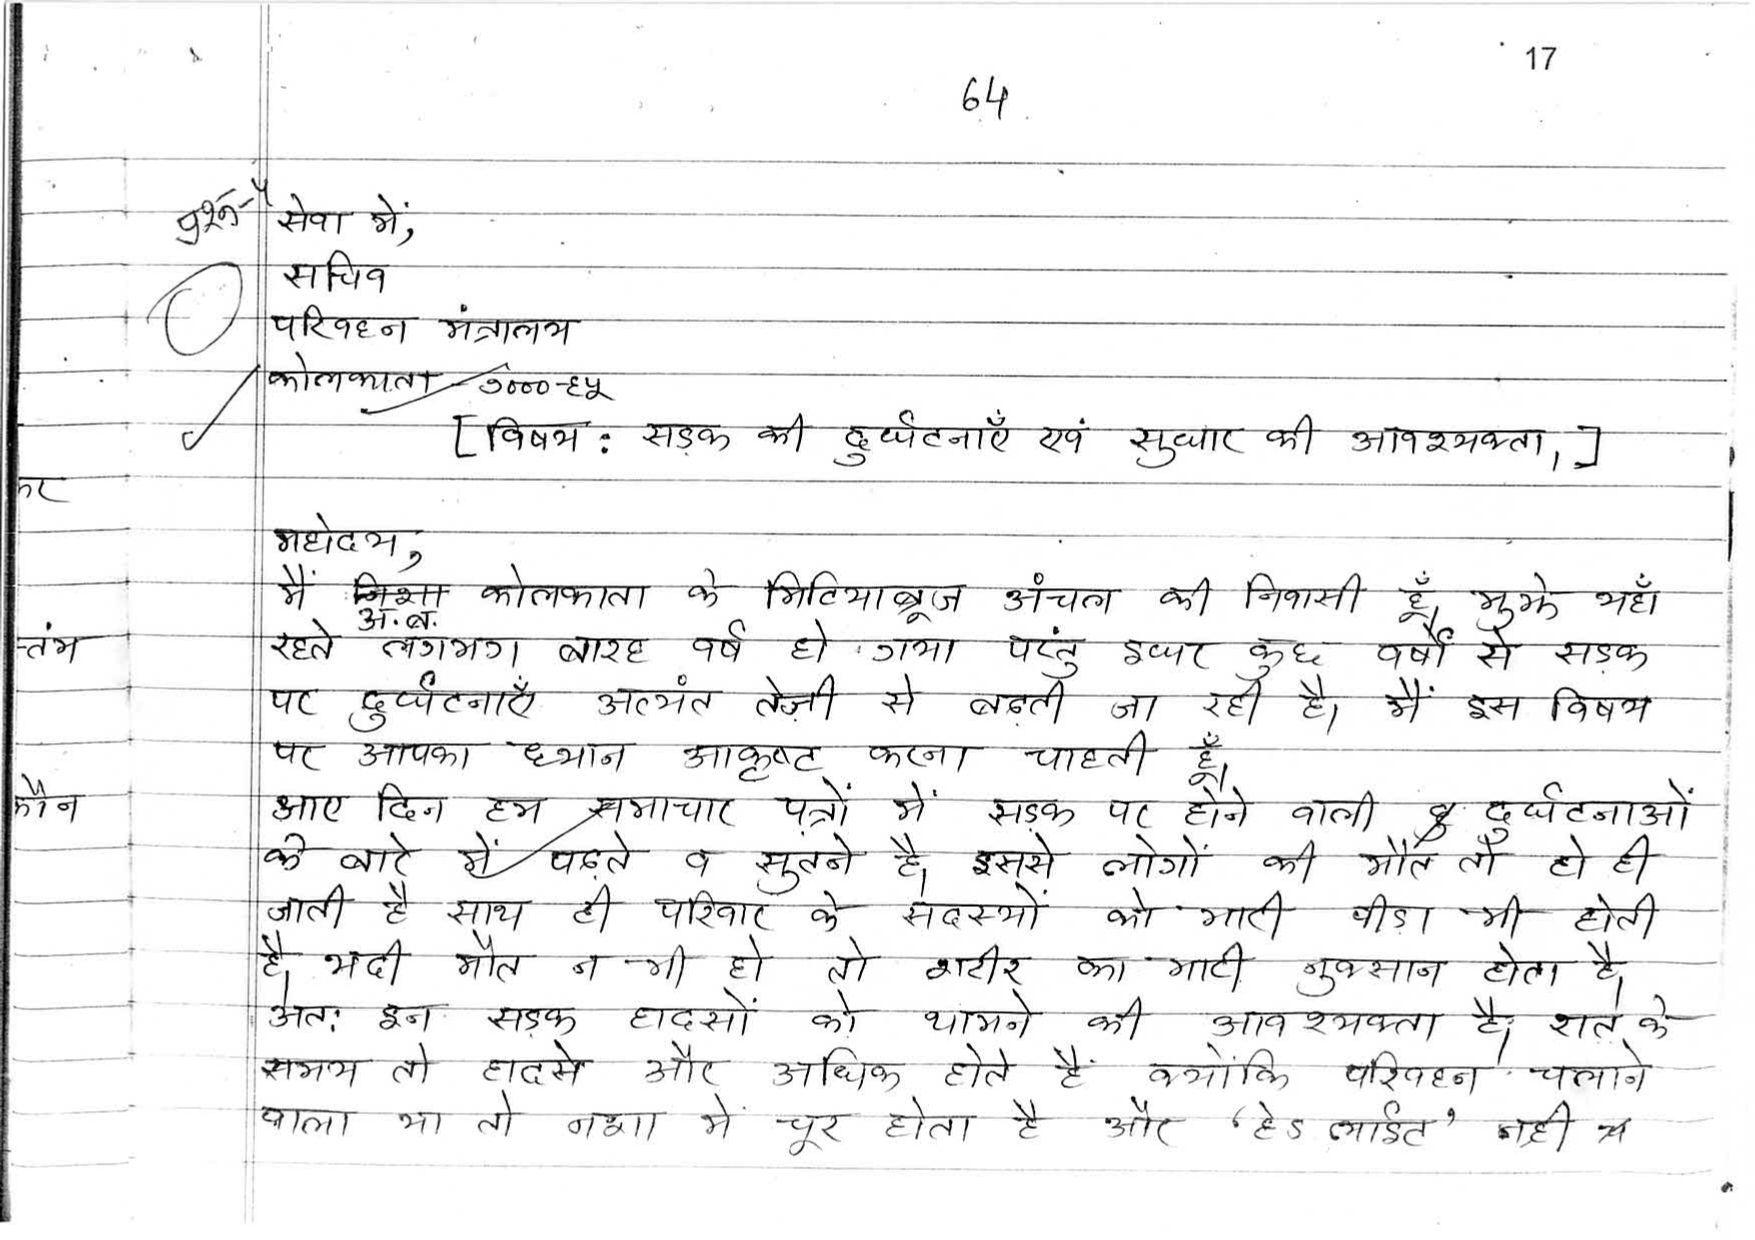 17
64
प्रश्न-५ सेवा में,
सचिव
परिवहन मंत्रालय
कोलकाता - ७०००-६५
[विषय: सड़क की दुर्घटनाएँ एवं सुधार की आवश्यकता।]
कर
महोदय,
मैं कोलकाता के मिटियाब्रूज अंचल की निवासी हूँ। मुझे यहाँ
अ.ब.
तंभ रहते लगभग बारह वर्ष हो गया परंतु इधर कुछ वर्षों से सड़क
पर दुर्घटनाएँ अत्यंत तेज़ी से बढ़ती जा रही है। मैं इस विषय
पर आपका ध्यान आकृष्ट करना चाहती हूँ।
कौन आए दिन हम समाचार पत्रों में सड़क पर होने वाली दुर्घटनाओं
के बारे में पढ़ते व सुतने है। इससे लोगों की मौत तो हो ही
जाती है साथ ही परिवार के सदस्यों को भारी पीड़ा भी होती
है। यदी मौत न भी हो तो शरीर का भारी नुक्सान होता है।
अतः इन सड़क हादसों को थामने की आवश्यक्ता है। रात के
समय तो हादसे और अधिक होते हैं क्योंकि परिवहन चलाने
वाला या तो नशा में चूर होता है और 'हेड लाईट' नही